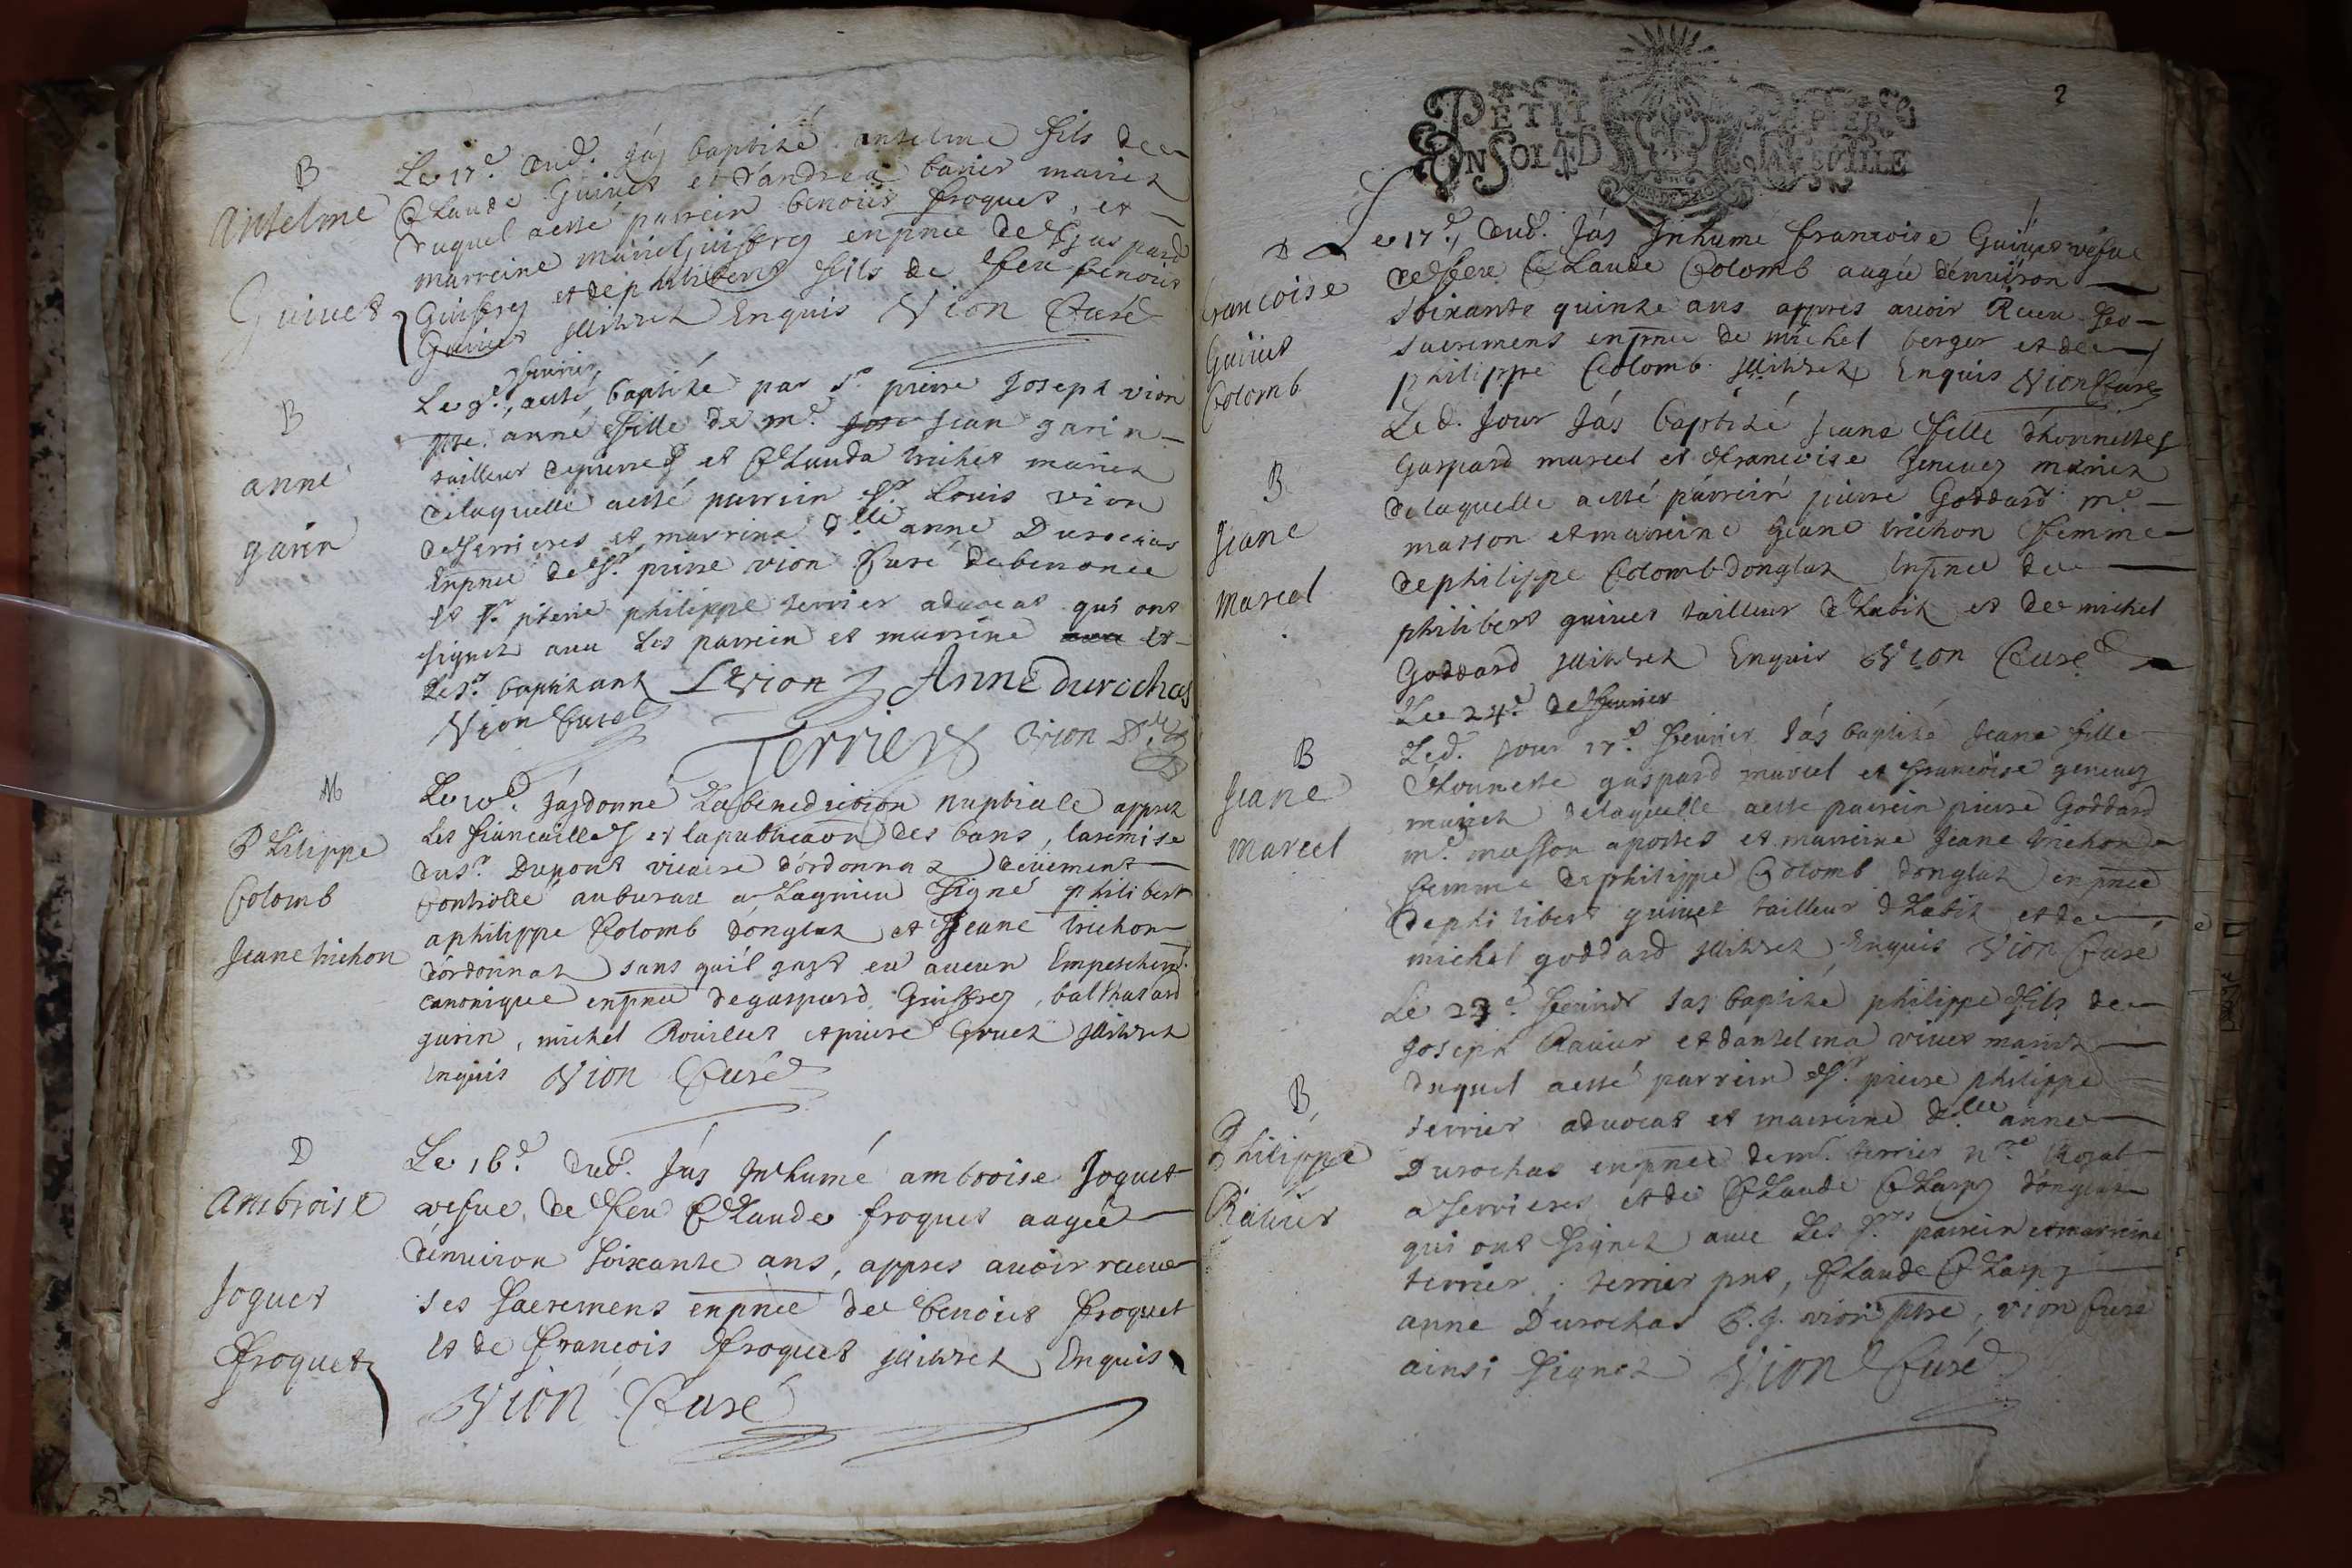 B
Anselme
Guiuet
Le 17.e dud. jay baptizé anselme fils de
Claude Guiuet et d'andrea barier mariez
duquel a esté parrein benoist froquet, et
marreine marie Guiffrey enpnce de Gaspard
Guiffrey et de philibert fils de feu benoist
Guiuet illitrez Enquis Vion Curé
B
anne
garin
feurier
Le 9.e, a esté baptizée par Sr. pierre Joseph vion
ptre. anne fille de m.e Jean garin
tailleur de pierres et Clauda trichet mariez
de laquelle a esté parrein Sr. Louis vion
de Serrieres et marrine d.lle anne Durochas
Enpnce de Sr. pierre vion Curé de benonce
et Sr. pierre philippe terrier aduocat qui ont
signez auec Les parrein et marrine et
Le Sr. baptizant LVion Anne durochas
Vion Curé
Terrier Vion Ptre
M
Philippe
Colomb
Jeane trichon
Le 10.e Jay donné La benediction nuptiale apprez
Les fiancailles et la publicaon des bans, la remise
du Sr. Dupont vicaire d'ordonnaz deüement
Controllé au bureau a Lagnieu Signé philibert
a philippe Colomb donglaz et Jeane trichon
d'ordonnaz sans quil y ayt eu aucun Empeschemt.
canonique enpnce de gaspard Guiffrey, balthasard
garin, michel Rouillet et pierre Gruet illitrez
Enquis Vion Curé
D
Ambroise
Joguet
froquet
Le 16.e dud. Jay Inhumé ambroise Joguet
vefue de feu Claude froquet aagée
d'enuiron soixante ans, appres auoir receu
ses sacremens enpnce de benoist froquet
et de francois froquet illitrez Enquis
Vion Curé
2
PETIT PAPIER
UN SOL 4 D LA FEUILLE
D
francoise
Guiuet
Colomb
Le 17.e dud. Jay Inhumé francoise Guiuet vefue
de feu Claude Colomb aagée d'enuiron
soixante quinze ans appres auoir Receu Ses
sacremens enpnce de michel berger et de
philippe Colomb illitrez Enquis Vion Curé
B
Jeane
Marcel
Led. Jour Jay baptizé Jeane fille d'honnestes
Gaspard marcel et francoise Jeneuey mariez
de laquelle a esté parrein pierre Goddard m.e
masson et marreine Jeane trichon femme
de philippe Colomb donglaz Enpnce de
philibert guiuet tailleur d'habit et de michel
Goddard illitrez Enquis Vion Curé
Le 24.e de feurier
B
Jeane
Marcel
Led. Jour 17.e feurier Jay baptizé Jeane fille
d'honneste gaspard marcel et francoise geneuey
mariez delaquelle a esté parrein pierre Goddard
m.e masson a portes et marreine Jeane trichon
femme de philippe Colomb donglaz enpnce
de philibert guiuet tailleur d'habit et de
michel goddard illitrez Enquis Vion Curé
B
Philippe
Rauier
Le 23.e feurier Jay baptizé philippe fils de
Joseph Rauier et d'anselma viuet mariez
duquel a esté parrein Sr. pierre philippe
terrier aduocat et marreine d.lle anne
Durochas enpnce de m.e terrier n.re Royal
a Serrieres et de Claude Charpy donglaz
qui ont signez auec Les Srs. parrein et marreine
terrier, terrier pnt, Claude Charpy
anne Durochas P.J. vion ptre, vion Curé
ainsi Signez Vion Curé